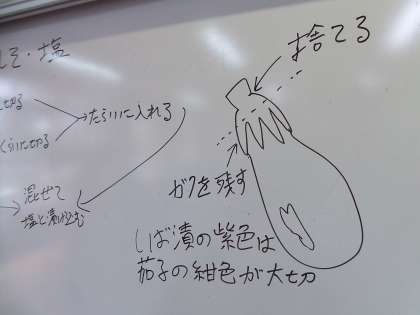 しそ・塩
切る
くらいに切る
たらいに入れる
混ぜて
塩と漬け込む
捨てる
ガクを残す
しば漬の紫色は
茄子の紺色が大切